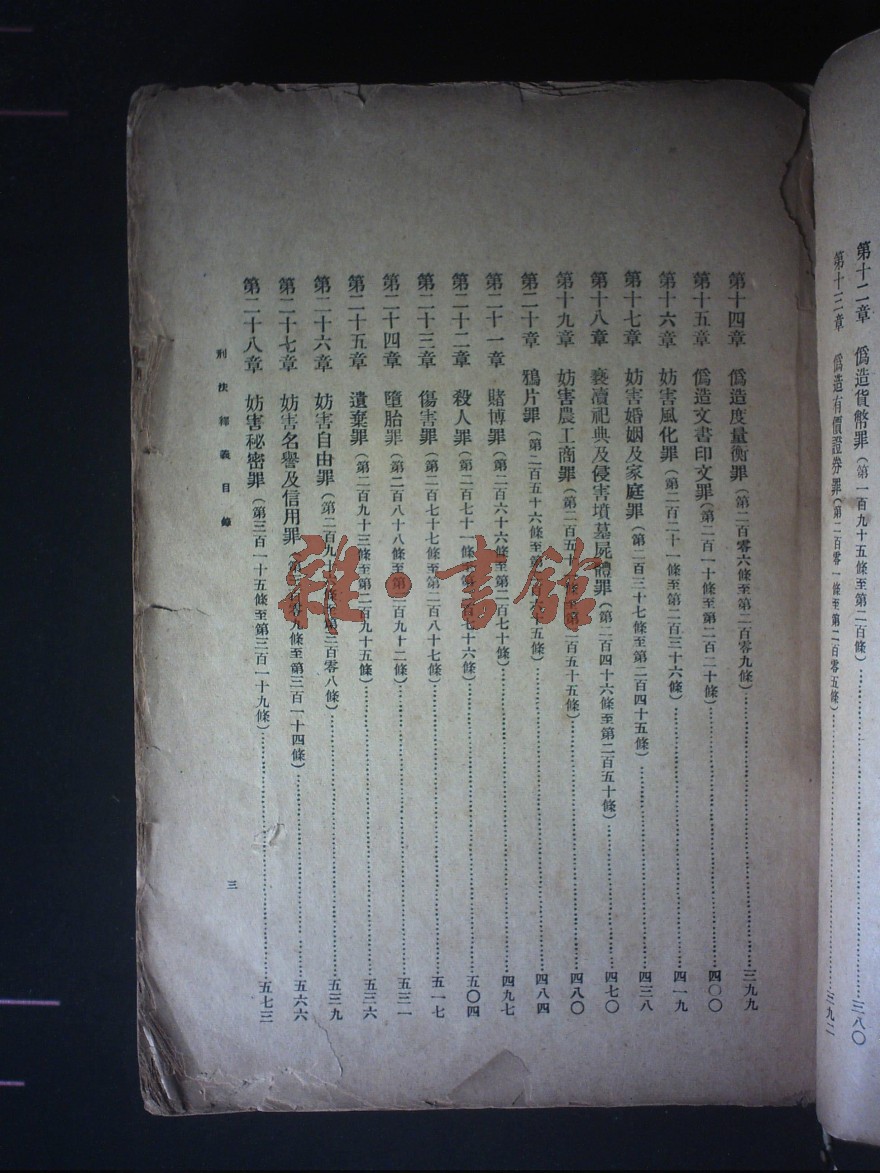 第十二章　僞造貨幣罪（第一百九十五條至第二百條）……三八〇
第十三章　僞造有價證券罪（第二百零一條至第二百零五條）……三九二
第十四章　僞造度量衡罪（第二百零六條至第二百零九條）……三九九
第十五章　僞造文書印文罪（第二百一十條至第二百二十條）……四〇〇
第十六章　妨害風化罪（第二百二十一條至第二百三十六條）……四一九
第十七章　妨害婚姻及家庭罪（第二百三十七條至第二百四十五條）……四三八
第十八章　褻瀆祀典及侵害墳墓屍體罪（第二百四十六條至第二百五十條）……四七〇
第十九章　妨害農工商罪（第二百五十一條至第二百五十五條）……四八〇
第二十章　鴉片罪（第二百五十六條至第二百六十五條）……四八四
第二十一章　賭博罪（第二百六十六條至第二百七十條）……四九七
第二十二章　殺人罪（第二百七十一條至第二百七十六條）……五〇四
第二十三章　傷害罪（第二百七十七條至第二百八十七條）……五一七
第二十四章　墮胎罪（第二百八十八條至第二百九十二條）……五三一
第二十五章　遺棄罪（第二百九十三條至第二百九十五條）……五三六
第二十六章　妨害自由罪（第二百九十六條至第三百零八條）……五三九
第二十七章　妨害名譽及信用罪（第三百零九條至第三百一十四條）……五六六
第二十八章　妨害秘密罪（第三百一十五條至第三百一十九條）……五七三
刑法釋義目錄
三
雜·書館